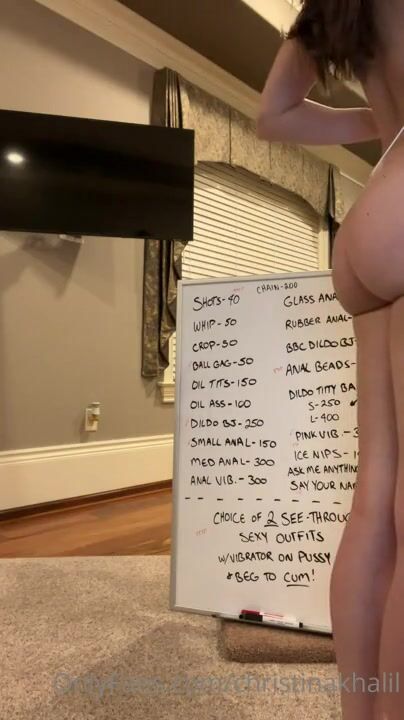 CHAIN-200
SHOTS-40
WHIP-50
CROP-50
BALL GAG-50
OIL TITS-150
OIL ASS-100
DILDO BJ-250
SMALL ANAL-150
MED ANAL-300
ANAL VIB.-300
GLASS ANA
RUBBER ANAL-
BBC DILDO BJ-
ANAL BEADS-
DILDO TITTY BA
S-250
L-400
PINK VIB.-3
ICE NIPS-1
ASK ME ANYTHING
SAY YOUR NAM
CHOICE OF 2 SEE-THROUG
SEXY OUTFITS
W/VIBRATOR ON PUSSY
& BEG TO CUM!
OnlyFans.com/christinakhalil